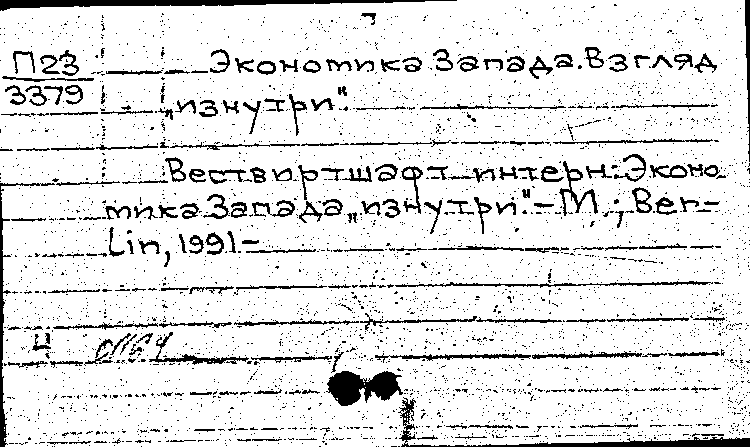 П23
3379
Экономика Запада. Взгляд
„изнутри“.
Вествиртшафт интерн: Эконо-
мика Запада „изнутри“. – М.; Ber-
lin, 1991 –
Ч